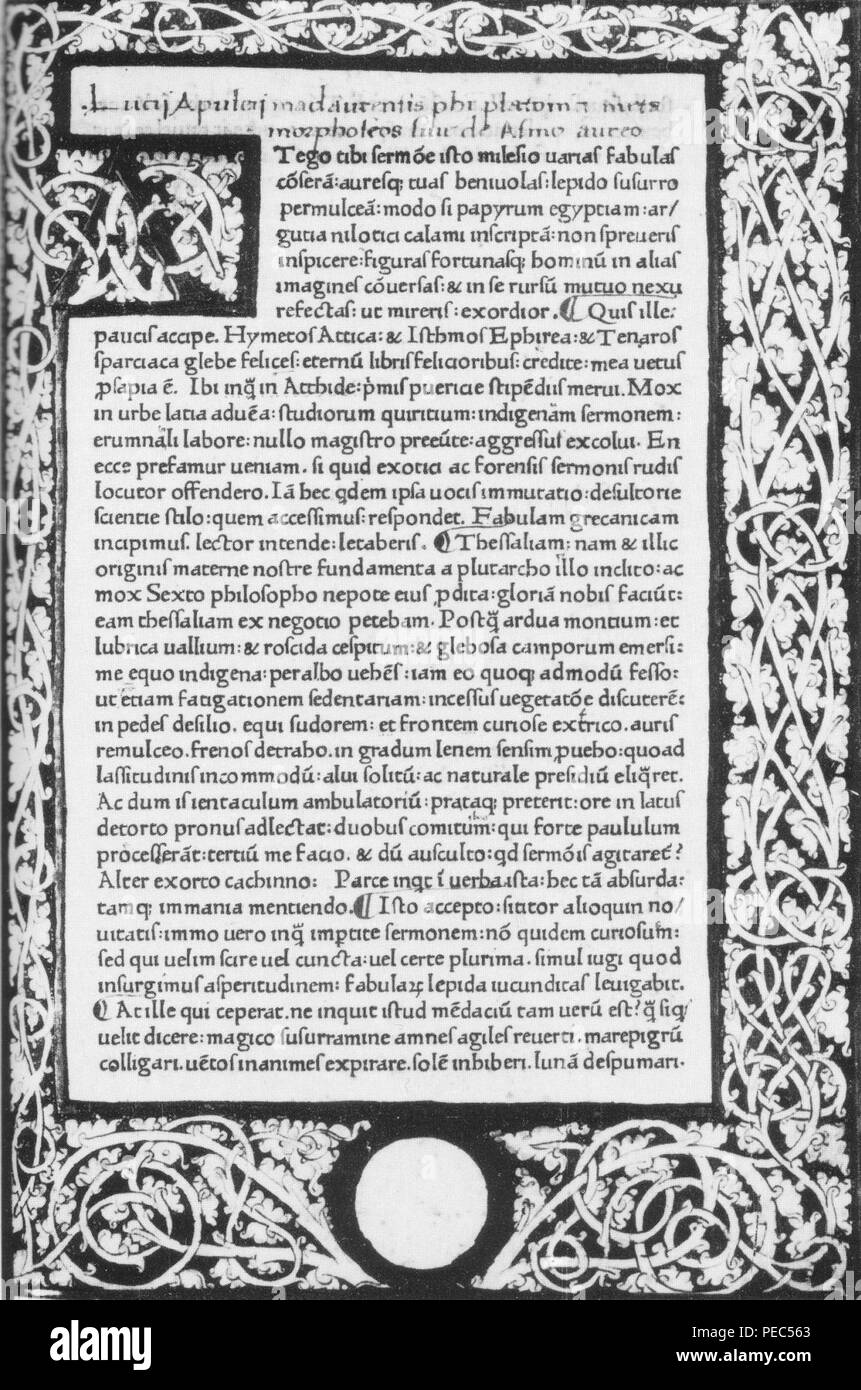 Lucij Apuleij madaurensis phi platonici meta
morphoseos siue de Asino aureo
Tego tibi sermõe isto milesio uarias fabulas
cõserã: auresq; tuas beniuolas: lepido susurro
permulceã: modo si papyrum egyptiam: ar/
gutia nilotici calami inscriptã: non spreueris
inspicere: figuras fortunasq; hominũ in alias
imagines cõuersas: & in se rursũ mutuo nexu
refectas: ut mireris: exordior. ¶ Quis ille:
paucis accipe. Hymetos Attica: & Isthmos Ephirea: & Tenaros
sparciaca glebe felices: eternũ libris felicioribus: credite: mea uetus
ꝓsapia ẽ. Ibi inq̃ in Atthide: p̃mis puericie stipẽdiis merui. Mox
in urbe latia aduẽa: studiorum quiritium: indigenam sermonem:
erumnali labore: nullo magistro preeũte: aggressus excolui. En
ecce prefamur ueniam. si quid exotici ac forensis sermonis rudis
locutor offendero. Iã hec qdem ipsa uocis immutatio: desultorie
scientie stilo: quem accessimus: respondet. Fabulam grecanicam
incipimus. lector intende: letaberis. ¶ Thessaliam: nam & illic
originis materne nostre fundamenta a plutarcho illo inclito: ac
mox Sexto philosopho nepote eius ꝓdita: gloriã nobis faciũt:
eam thessaliam ex negotio petebam. Postq̃ ardua montium: et
lubrica uallium: & roscida cespitum: & glebosa camporum emersi:
me equo indigena: peralbo uehẽs: iam eo quoq; admodũ fesso:
ut etiam fatigationem sedentariam: incessus uegetatõe discuterẽ:
in pedes desilio. equi sudorem: et frontem curiose extrico. auris
remulceo. frenos detraho. in gradum lenem sensim ꝓuebo: quoad
lassitudinis incommodũ: alui solitũ: ac naturale presidiũ eliq̃ret.
Ac dum is ientaculum ambulatoriũ: prataq; preterit: ore in latus
detorto pronus adlectat: duobus comitum: qui forte paululum
processerãt: tertiũ me facio. & dũ ausculto: qd sermõis agitaret?
Alter exorto cachinno: Parce inqt ĩ uerba ista: hec tã absurda:
tamq; immania mentiendo. ¶ Isto accepto: sititor alioquin no/
uitatis: immo uero inq̃ imꝑtite sermonem: nõ quidem curiosum:
sed qui uelim scire uel cuncta: uel certe plurima. simul iugi quod
insurgimus asperitudinem: fabulaꝝ lepida iucunditas leuigabit.
¶ At ille qui ceperat. ne inquit istud mẽdaciũ tam uerũ est? q̃ siq;
uelit dicere: magico susurramine amnes agiles reuerti. mare pigrũ
colligari. uẽtos inanimes expirare. solẽ inhiberi. lunã despumari.
alamy
Image ID: PEC563
www.alamy.com